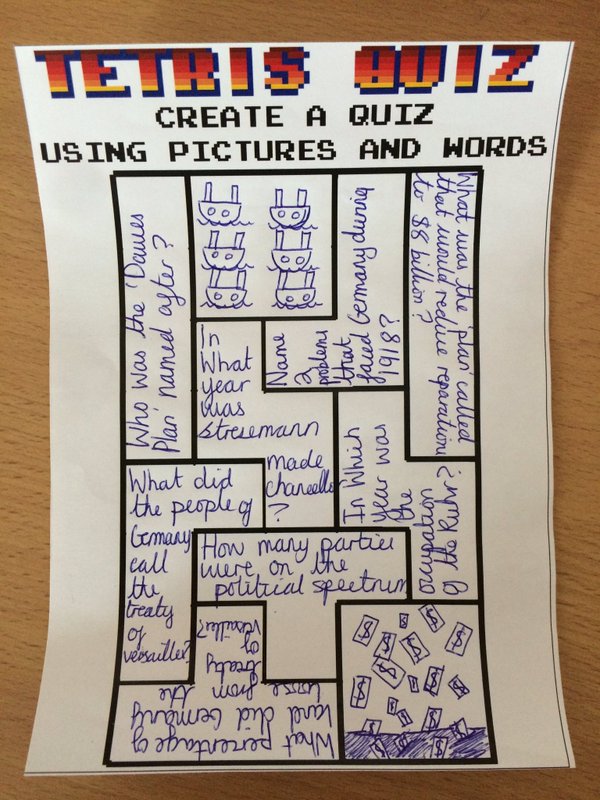 TETRIS QUIZ
CREATE A QUIZ
USING PICTURES AND WORDS
Who was the 'Dawes
Plan' named after?
Name
2
problems
that
faced Germany during
1918?
What was the 'plan' called
that would reduce reparations
to $8 billion?
In
What
year
was
Stresemann
made
chancellor
?
In Which
year was
the
occupation
of the Ruhr?
What did
the people of
Germany
call
the
treaty
of
versailles?
How many parties
were on the
political spectrum
What percentage of
land did Germany
loose from the
treaty
of
Versailles?
$ $ $ $ $ $ $ $ $ $ $ $ $ $ $